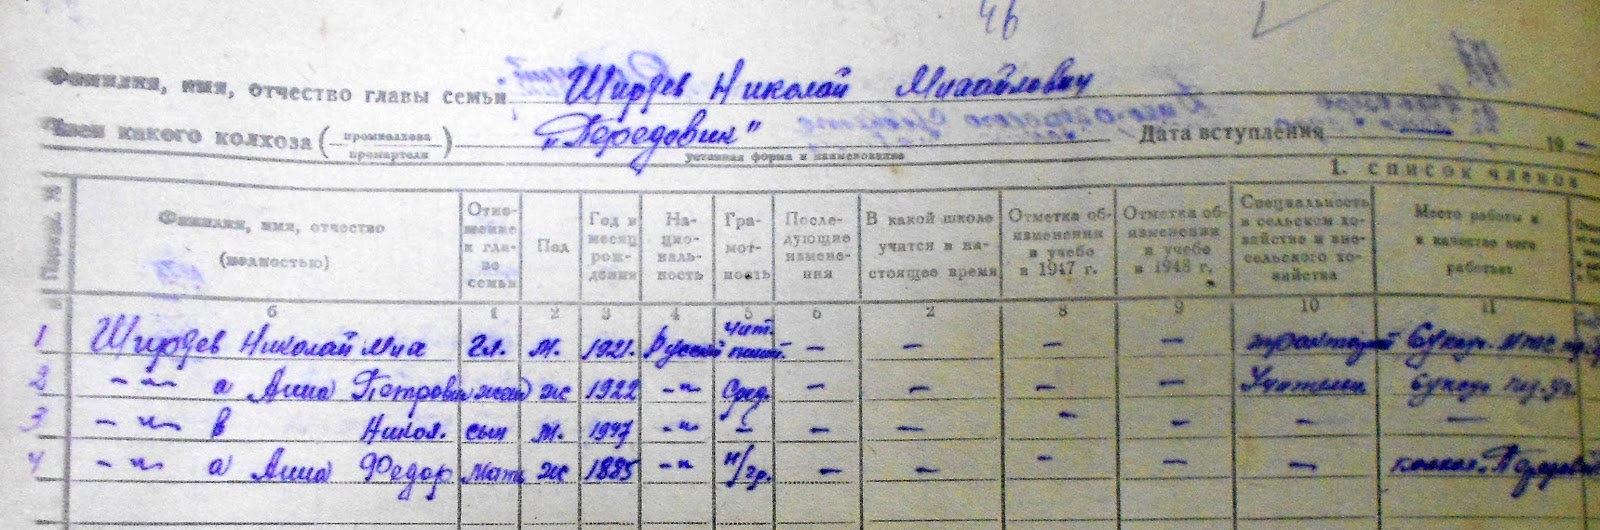 46
Фамилия, имя, отчество главы семьи Ширдев Николай Михайлович
Член какого колхоза (промколхоза промартели) „Передовик" Дата вступления — 19 —
уставная форма и наименование
1. список членов
Фамилия, имя, отчество (полностью) Отношение к главе семьи Пол Год и месяц рождения Национальность Грамотность Последующие изменения В какой школе учится в настоящее время Отметка об изменении в учебе в 1947 г. Отметка об изменении в учебе в 1948 г. Специальность в сельском хозяйстве и вне сельского хозяйства Место работы и в качестве кого работает
б 1 2 3 4 5 6 2 8 9 10 11
1 Ширдев Николай Мих гл. м. 1921. Русский чит. пишт. — — — — тракторист
2 —"— а Анна Петровн жена ж 1922 —"— Сред. — — — — Учитель
3 —"— в Никол. сын м. 1947 —"— — — — — — — —
4 —"— а Анна Федор мать ж 1885 —"— н/гр. — — — — — колхоз. Передовик